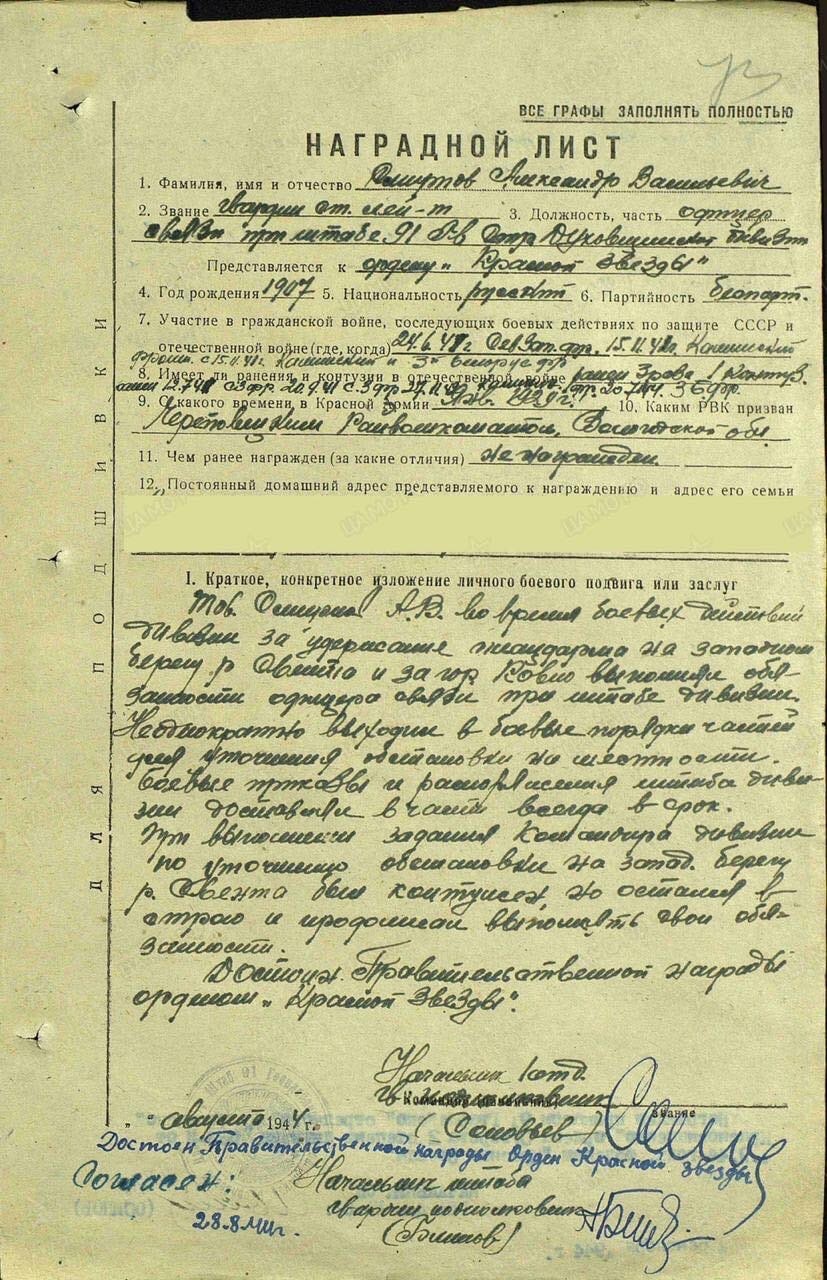 ВСЕ ГРАФЫ ЗАПОЛНЯТЬ ПОЛНОСТЬЮ
НАГРАДНОЙ ЛИСТ
1. Фамилия, имя и отчество Александр Васильевич
2. Звание гвардии ст. лей-т 3. Должность, часть офицер
связи при штабе 91 Гв Стр Духовщинской дивизии
Представляется к ордену „Красной Звезды"
4. Год рождения 1907 5. Национальность русский 6. Партийность беспарт.
7. Участие в гражданской войне, последующих боевых действиях по защите СССР и
отечественной войне (где, когда) 24.6.41г Сев.Зап.фр. 15.11.41г. Калининский
фронт. с 15.11.41г. Калининский и 3й Белорус фр
8. Имеет ли ранения и контузии в отечественной войне
9. С какого времени в Красной Армии 10. Каким РВК призван
Череповецким Райвоенкоматом, Вологодской обл
11. Чем ранее награжден (за какие отличия) не награжден
12. Постоянный домашний адрес представляемого к награждению и адрес его семьи
I. Краткое, конкретное изложение личного боевого подвига или заслуг
Тов. А.В. во время боевых действий
дивизии за удержание плацдарма на западном
берегу р Свента и за гор Ковно выполнял обя-
занности офицера связи при штабе дивизии.
Неоднократно выходил в боевые порядки частей
для уточнения обстановки на местности.
Боевые приказы и распоряжения штаба диви-
зии доставлял в части всегда в срок.
При выполнении задания Командира дивизии
по уточнению обстановки на запад. берегу
р. Свента был контужен, но остался в
строю и продолжал выполнять свои обя-
занности.
Достоин Правительственной награды
орденом „Красной Звезды".
Начальник 1 отд.
гв.
(Соловьев)
звание
„ " август 1944 г.
Достоен Правительственной награды Орден Красной звезды
Согласен: Начальник штаба
28.8.44г. гвардии подполковник
ДЛЯ ПОДШИВКИ